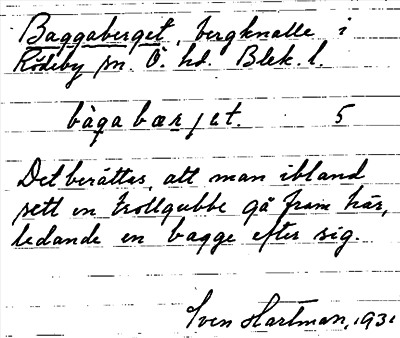 Baggaberget, bergknalle i
Rödeby sn. Ö. hd. Blek. l.
bàgabærjet. 5
Det berättas, att man ibland
sett en trollgubbe gå fram här,
ledande en bagge efter sig.
Sven Hartman, 1931